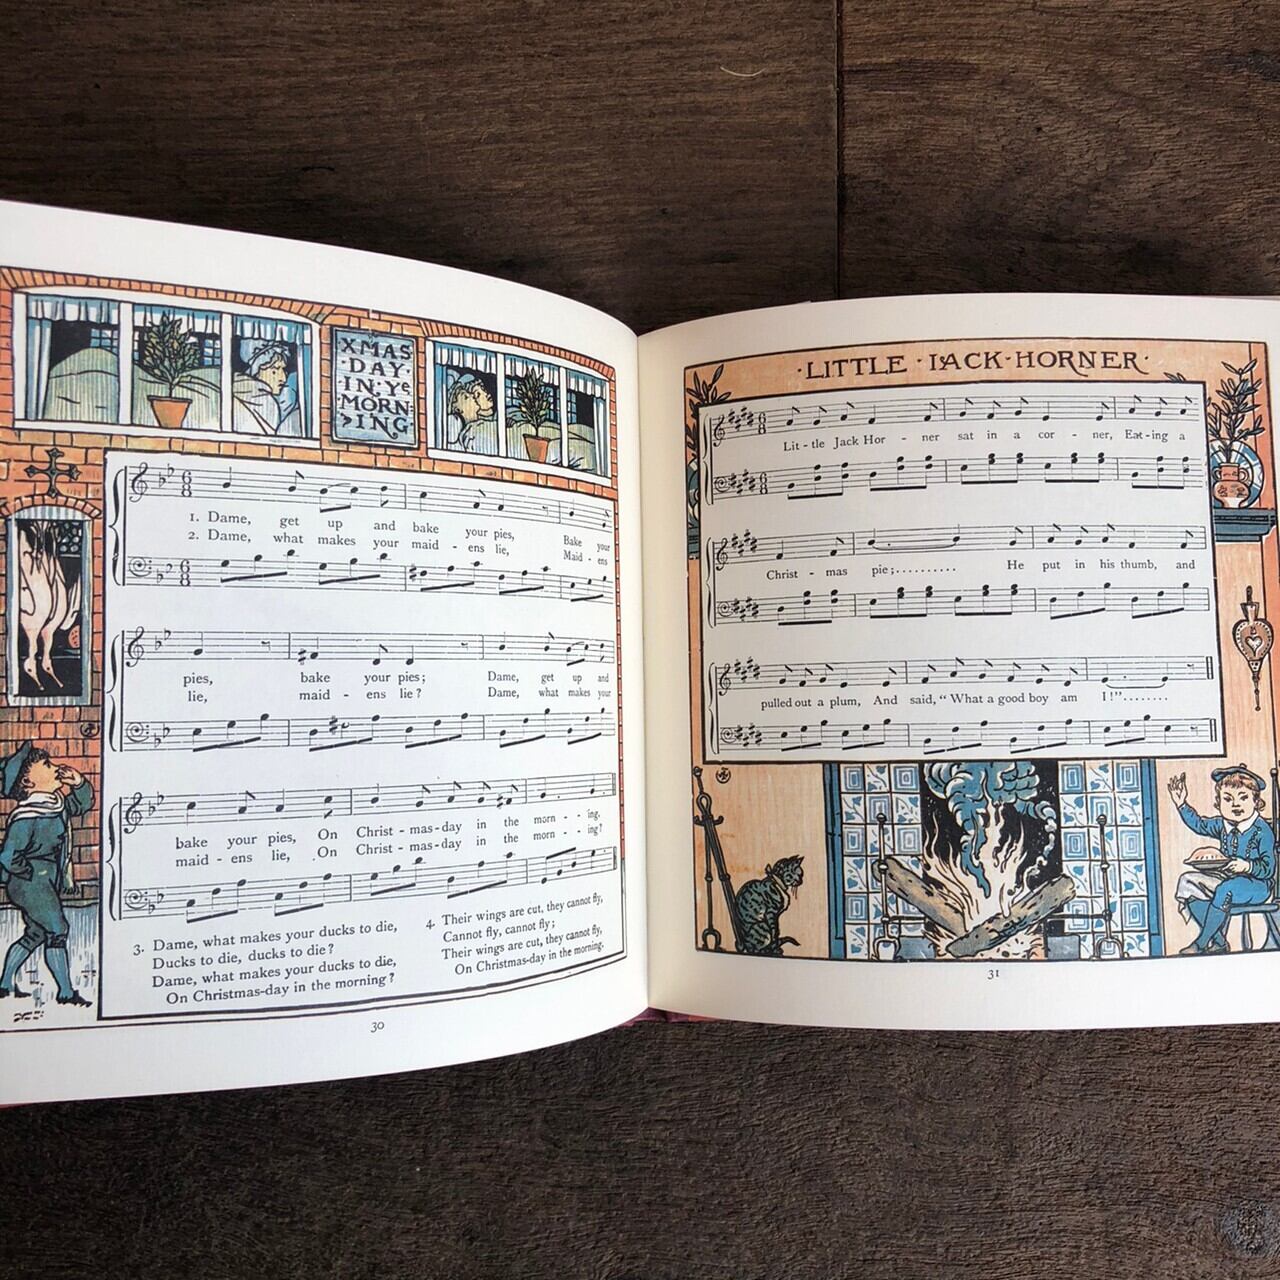 XMAS
DAY
IN Ye
MORN
ING
1. Dame, get up and bake your pies, Bake your
2. Dame, what makes your maid - ens lie, Maid - ens
pies, bake your pies; Dame, get up and
lie, maid - ens lie? Dame, what makes your
bake your pies, On Christ - mas-day in the morn - - ing.
maid - ens lie, On Christ - mas-day in the morn - - ing?
3. Dame, what makes your ducks to die,
Ducks to die, ducks to die?
Dame, what makes your ducks to die,
On Christmas-day in the morning?
4. Their wings are cut, they cannot fly,
Cannot fly, cannot fly;
Their wings are cut, they cannot fly,
On Christmas-day in the morning.
30
·LITTLE·JACK·HORNER·
Lit - tle Jack Hor - ner sat in a cor - ner, Eat - ing a
Christ - mas pie;.......... He put in his thumb, and
pulled out a plum, And said, "What a good boy am I!"........
31